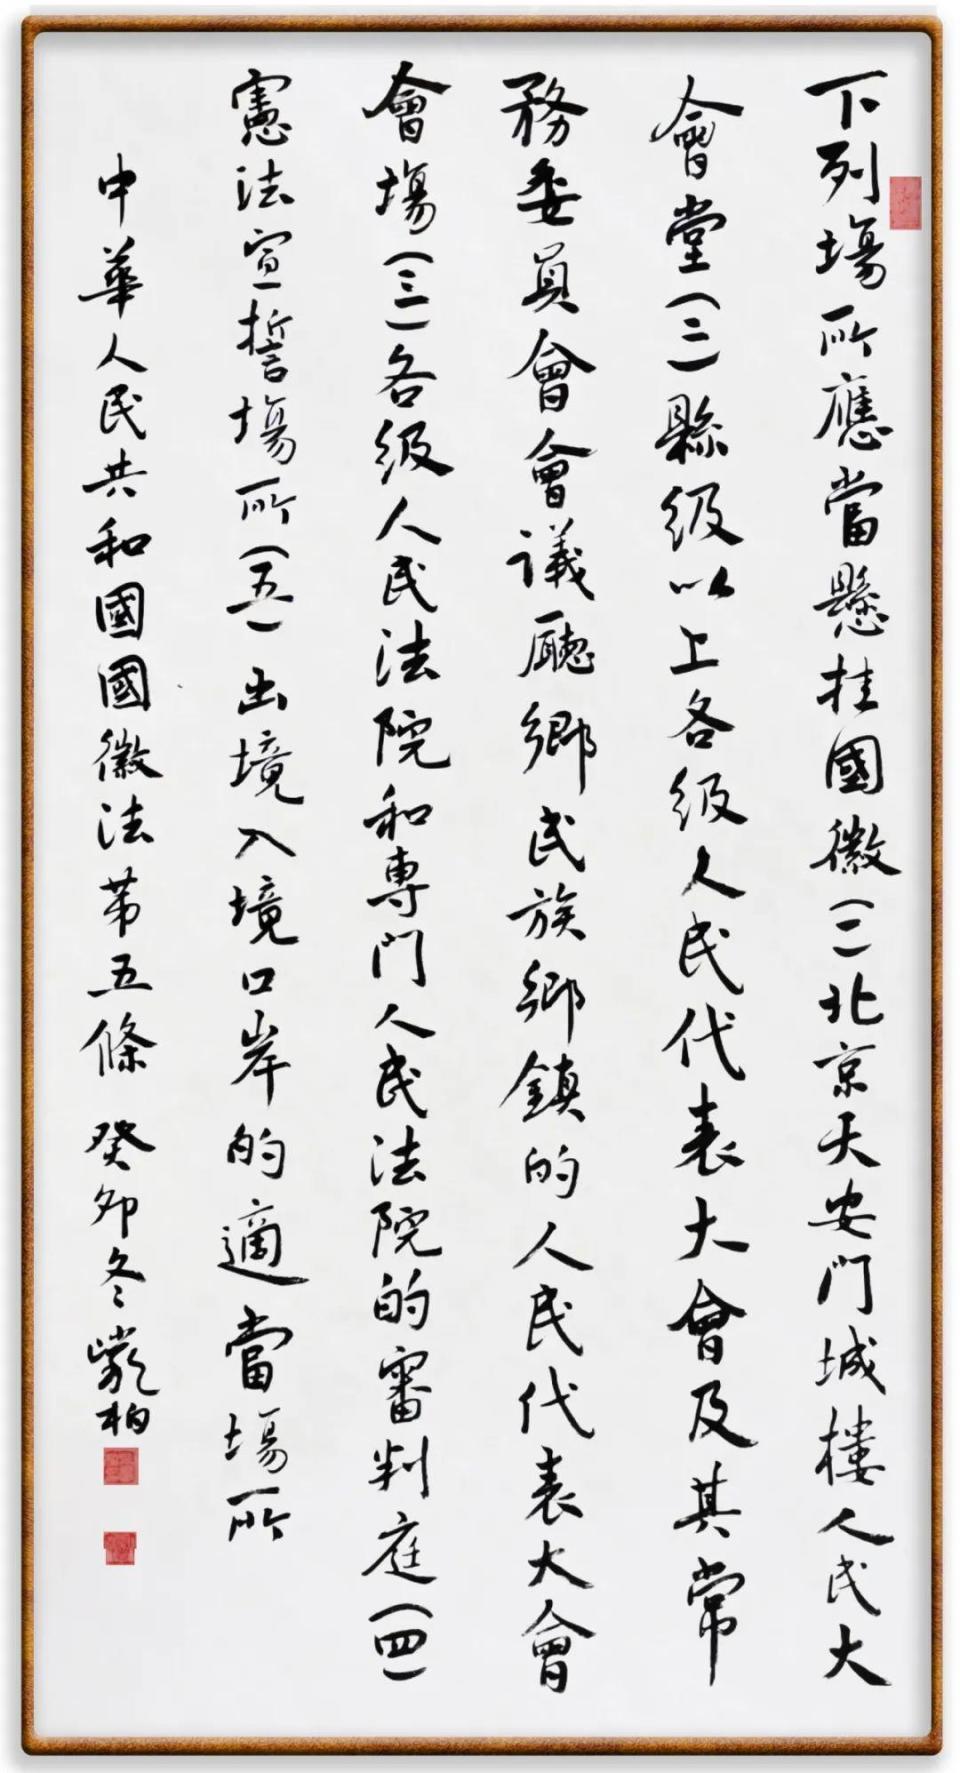 下列場所應當懸挂國徽（一）北京天安門城樓人民大
會堂（二）縣級以上各級人民代表大會及其常
務委員會會議廳鄉民族鄉鎮的人民代表大會
會場（三）各級人民法院和專門人民法院的審判庭（四）
憲法宣誓場所（五）出境入境口岸的適當場所
中華人民共和國國徽法第五條 癸卯冬 柏